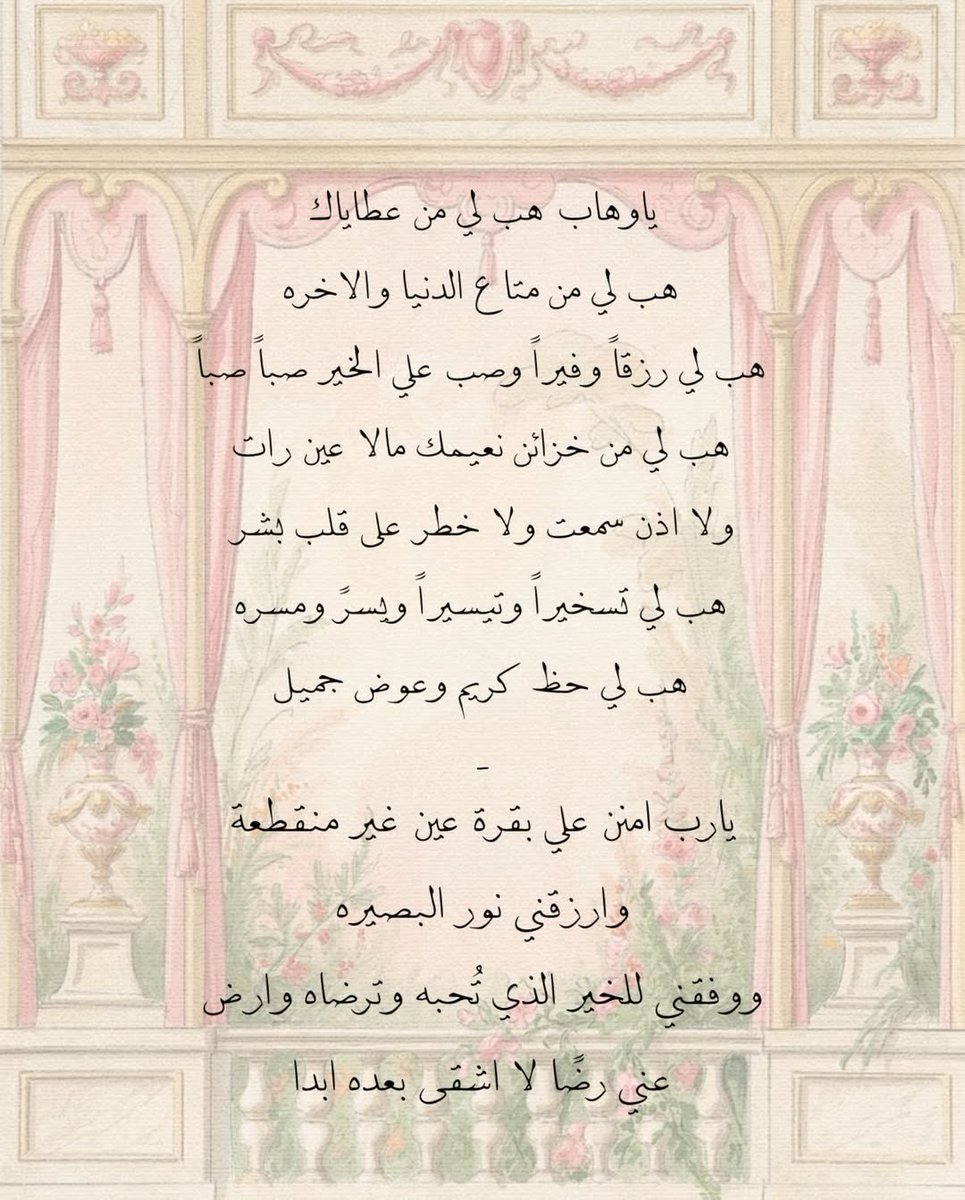 ياوهاب هب لي من عطاياك
هب لي من متاع الدنيا والاخره
هب لي رزقاً وفيراً وصب علي الخير صباً صباً
هب لي من خزائن نعيمك مالا عين رات
ولا اذن سمعت ولا خطر على قلب بشر
هب لي تسخيراً وتيسيراً ويسرً ومسره
هب لي حظ كريم وعوض جميل
-
يارب امنن علي بقرة عين غير منقطعة
وارزقني نور البصيره
ووفقني للخير الذي تُحبه وترضاه وارض
عني رضًا لا اشقى بعده ابدا